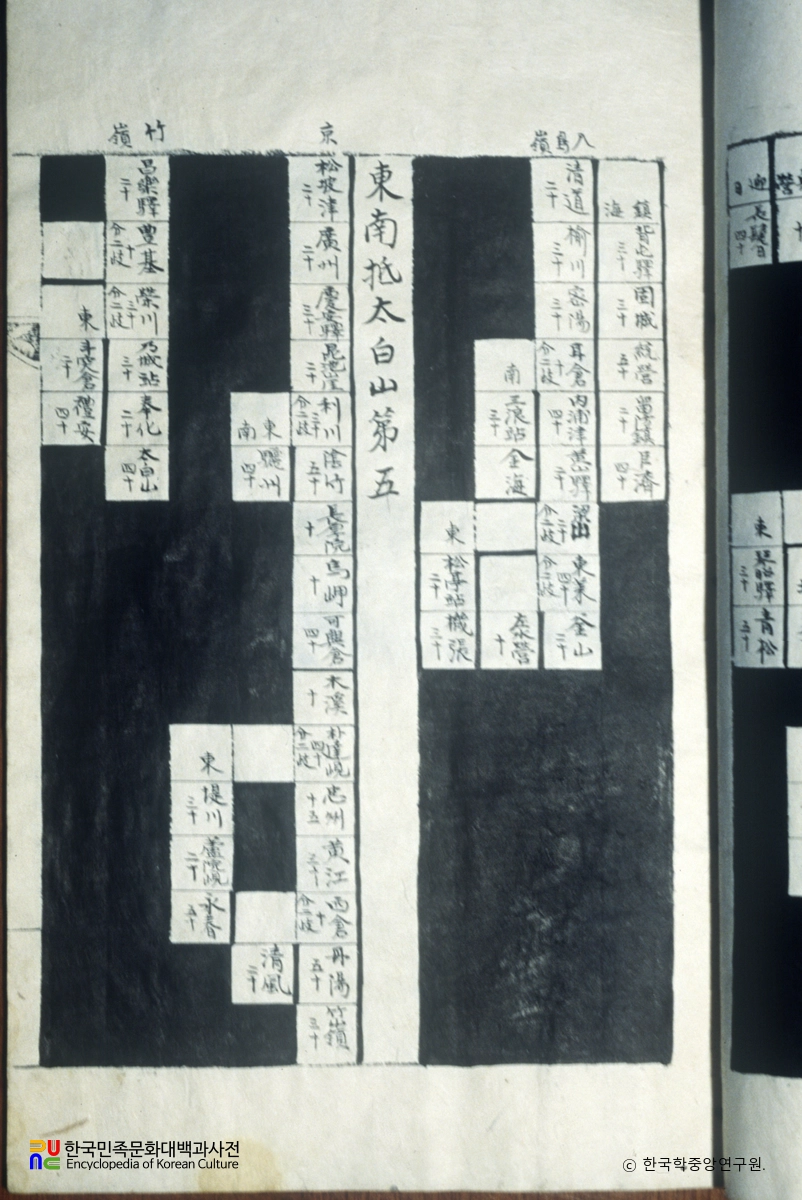 鎮海
背屯驛 三十
固城 三十
統營 五十
巨濟 四十
八鳥嶺
清道 二十
楡川 三十
密陽 三十
耳倉 十 分二歧
內浦津 四十
黃山驛 二十
梁山 二十 分二歧
東萊 四十 分二歧
釜山 二十
南
三浪站 三十
金海
左水營 十
東
松亭站 二十
機張 三十
東南抵太白山第五
京
松坡津 二十
廣州 二十
慶安驛 三十
昆池崖 二十
利川 三十 分二歧
陰竹 五十
長海院 十
烏岬 十
可興倉 四十
木溪 十
朴達峴 四十 分二歧
忠州 十五
黃江 三十
西倉 十 分二歧
丹陽 五十
竹嶺 三十
東南
驪州 四十
清風 二十
東
堤川 三十
蘆院峴 二十
永春 五十
竹嶺
昌樂驛 二十
豊基 十 分二歧
榮川 三十 分二歧
乃城站 三十
奉化 二十
太白山 四十
東
禮安 四十
迎日
長鬐 四十
東
琴召驛 三十
青松 五十
한국민족문화대백과사전
Encyclopedia of Korean Culture
© 한국학중앙연구원.